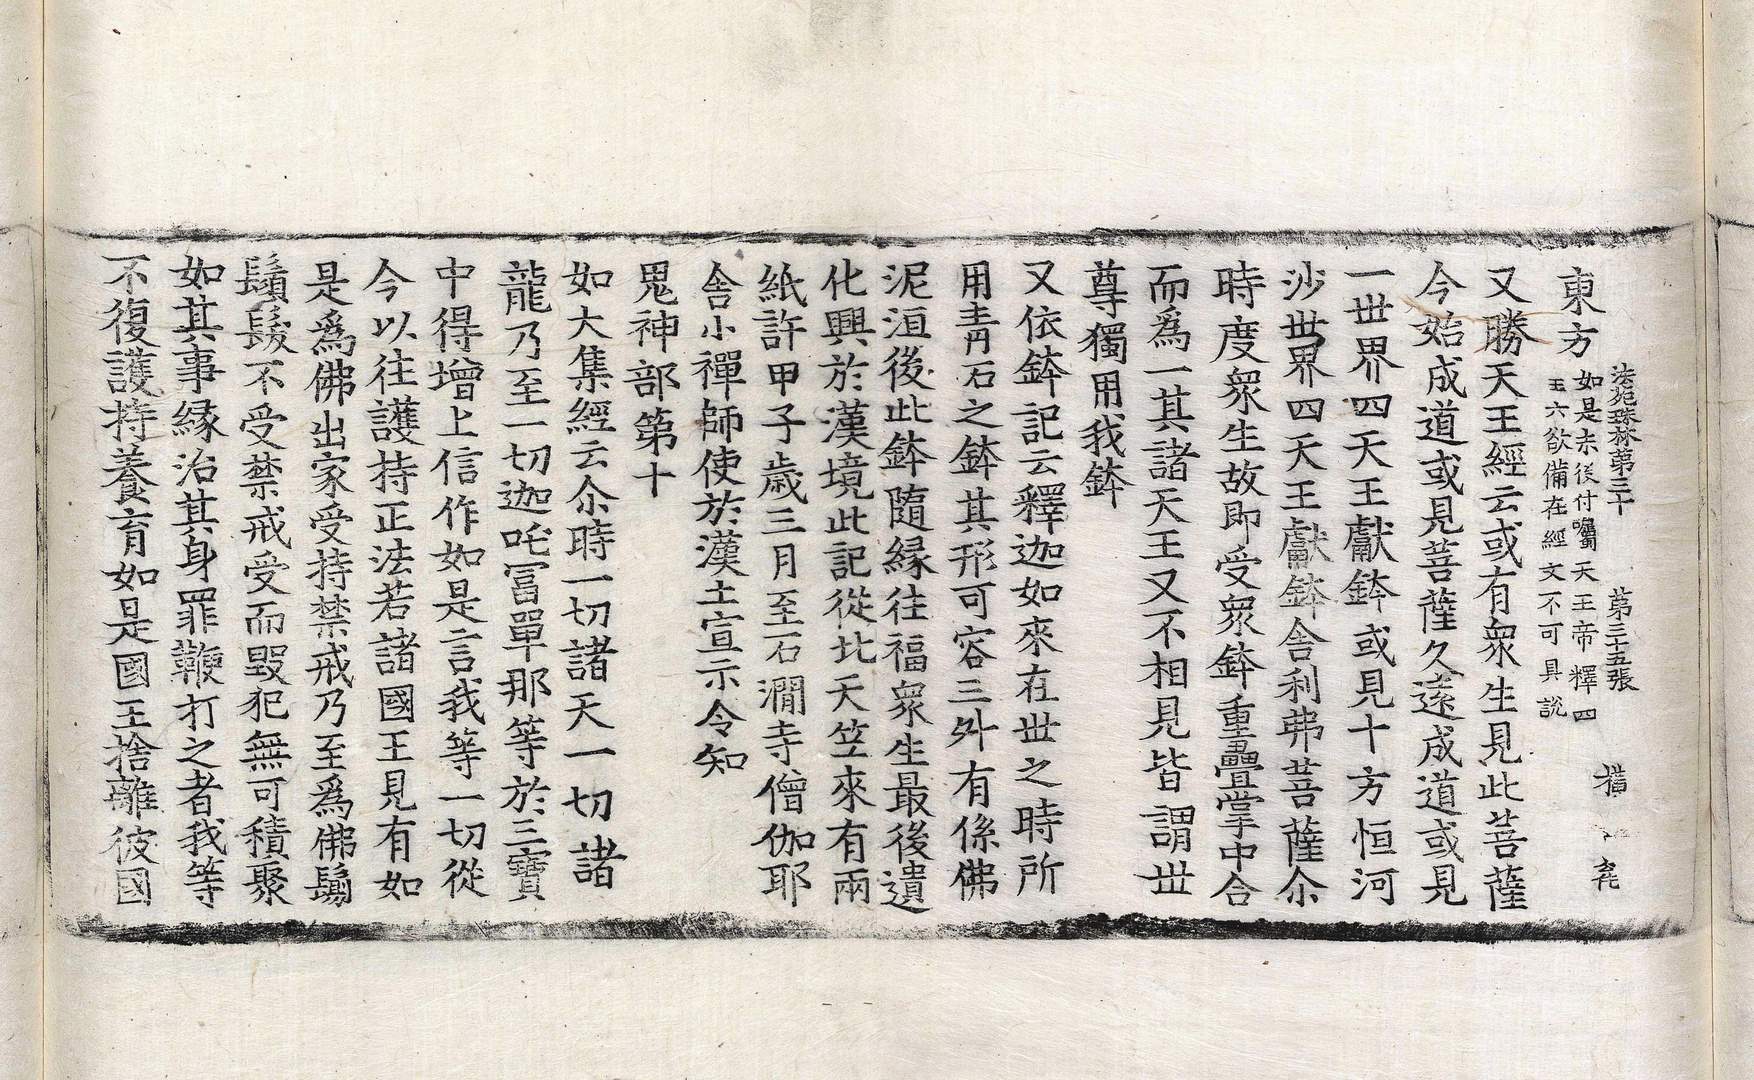 法苑珠林第三十　第三十五張　橫
東方
如是末後付囑天王帝釋四
王六欲備在經文不可具說
又勝天王經云或有衆生見此菩薩
今始成道或見菩薩久遠成道或見
一世界四天王獻鉢或見十方恒河
沙世界四天王獻鉢舍利弗菩薩尒
時度衆生故即受衆鉢重疊掌中合
而爲一其諸天王又不相見皆謂世
尊獨用我鉢
又依鉢記云釋迦如來在世之時所
用青石之鉢其形可容三外有係佛
泥洹後此鉢隨緣往福衆生最後遺
化興於漢境此記從北天笠來有兩
紙許甲子歲三月至石澗寺僧伽耶
舍小禪師使於漢土宣示令知
鬼神部第十
如大集經云尒時一切諸天一切諸
龍乃至一切迦吒冨單那等於三寶
中得增上信作如是言我等一切從
今以往護持正法若諸國王見有如
是爲佛出家受持禁戒乃至爲佛鬀
鬚髮不受禁戒受而毀犯無可積聚
如其事緣治其身罪鞭打之者我等
不復護持養育如是國王捨離彼國